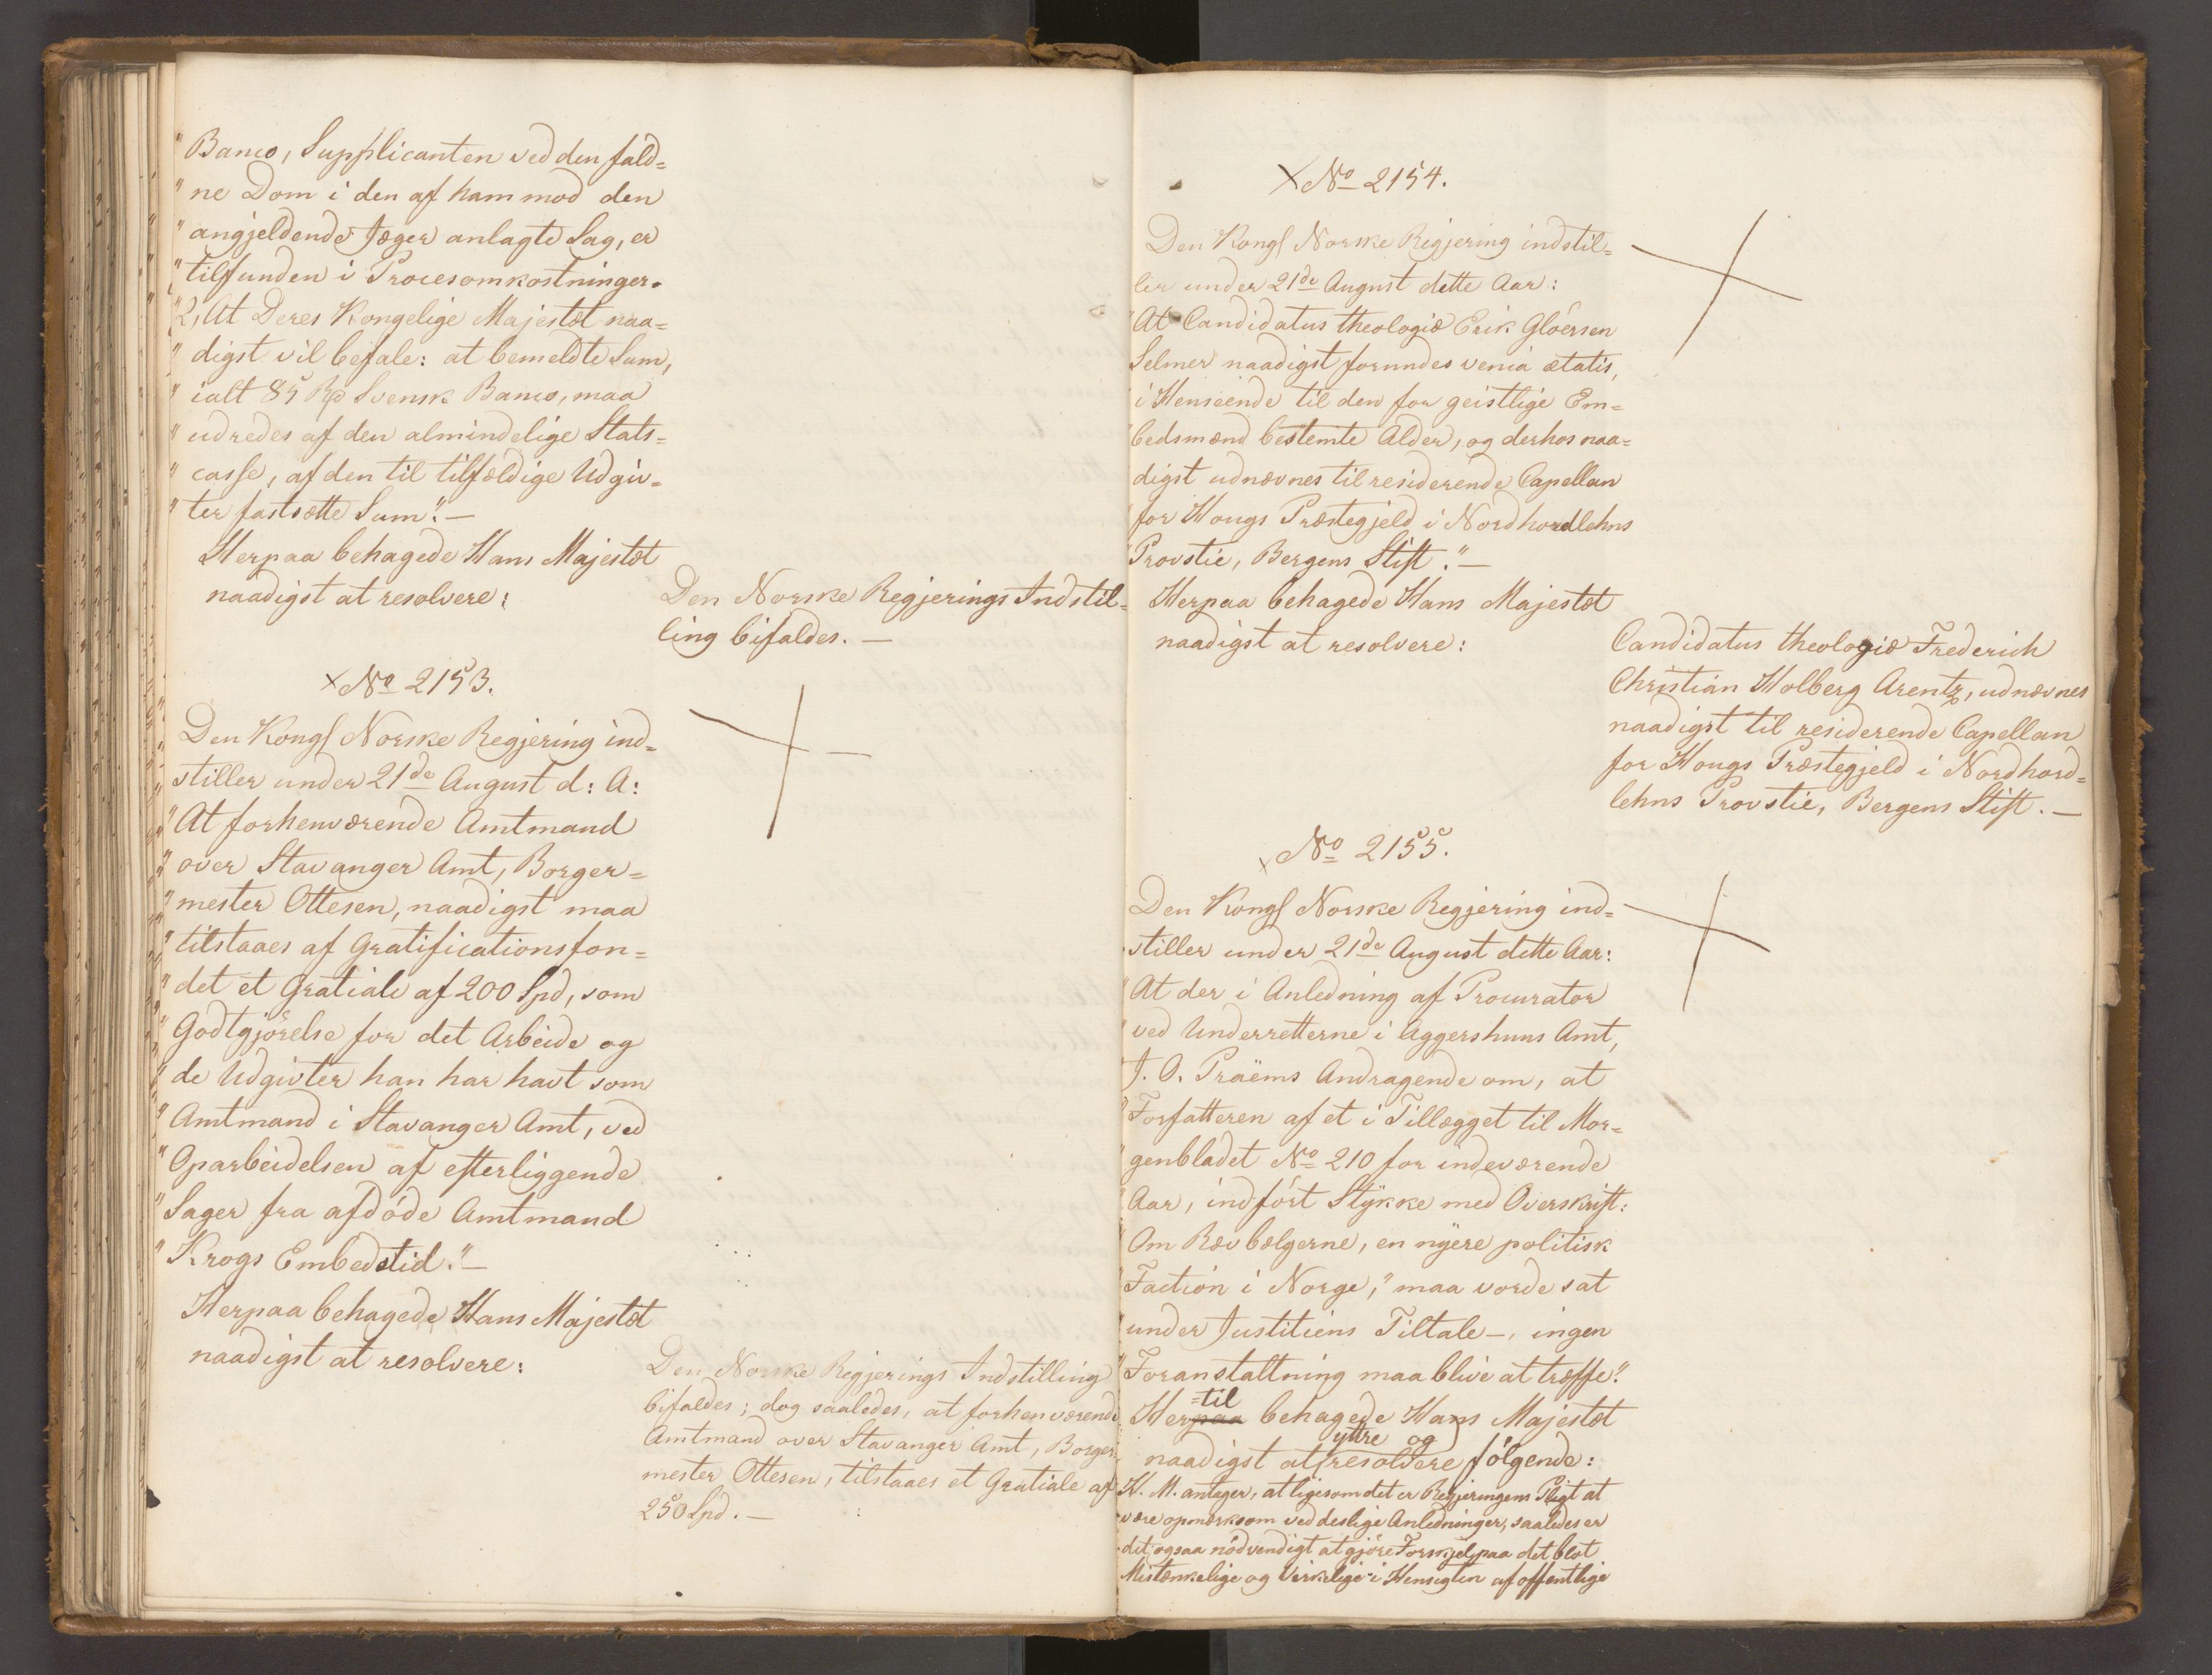 "Banco, Supplicanten ved den fald=
"ne Dom i den af ham mod den
"angjeldende Jæger anlagte Sag, er
"tilfunden i Procesomkostninger.
"2, At Deres Kongelige Majestæt naa=
"digst vil befale: at bemeldte Sum,
"ialt 85 Rp Svensk Banco, maa
"udredes af den almindelige Stats=
"casse, af den til tilfældige Udgiv=
"ter fastsatte Sum". —
Herpaa behagede Hans Majestæt
naadigst at resolvere:
Den Norske Regjerings Indstil=
ling bifaldes. —
× No 2153.
Den Kongl Norske Regjering ind=
stiller under 21de August d: A:
"At forhenværende Amtmand
"over Stavanger Amt, Borger=
"mester Ottesen, naadigst maa
"tilstaaes af Gratificationsfon=
"det et Gratiale af 200 Spd, som
"Godtgjörelse for det Arbeide og
"de Udgivter han har havt som
"Amtmand i Stavanger Amt, ved
"Oparbeidelsen af efterliggende
"Sager fra afdöde Amtmand
"Krogs Embedstid." —
Herpaa behagede Hans Majestæt
naadigst at resolvere:
Den Norske Regjerings Indstilling
bifaldes; dog saaledes, at forhenværende
Amtmand over Stavanger Amt, Borger=
mester Ottesen, tilstaaes et Gratiale af
250 Spd. —
× No 2154.
Den Kongl Norske Regjering indstil=
ler under 21de August dette Aar:
"At Candidatus theologiæ Erik Glöersen
Selmer naadigst forundes venia ætatis,
"i Henseende til den for geistlige Em=
"bedsmænd bestemte Alder, og derhos naa=
digst udnævnes til residerende Capellan
"for Hougs Præstegjeld i Nordhordlehns
"Provstie, Bergens Stift." —
Herpaa behagede Hans Majestæt
naadigst at resolvere:
Candidatus theologiæ Frederich
Christian Holberg Arentz, udnævnes
naadigst til residerende Capellan
for Hougs Præstegjeld i Nordhord=
lehns Provstie, Bergens Stift. —
× No 2155.
Den Kongl Norske Regjering ind=
stiller under 21de August dette Aar:
"At der i Anledning af Procurator
"ved Underretterne i Aggershuus Amt,
"J. O. Präems Andragende om, at
"Forfatteren af et i Tillægget til Mor=
"genbladet No 210 for indeværende
"Aar, indfört Stÿkke med Overskrift:
"Om Rævbælgerne, en nÿere politisk
"Faction i Norge," maa vorde sat
"under Justitiens Tiltale —, ingen
"Foranstaltning maa blive at træffe."
=til
Herpaa behagede Hans Majestæt
yttre og
naadigst at resolvere fölgende:
H. M. antager, at ligesom det er Regjeringens Pligt at
være opmærksom ved deslige Anledninger, saaledes er
det ogsaa nödvendigt at gjöre Forskjel paa det blot
Mistænkelige og Virkelige i Hensigten af offentlige